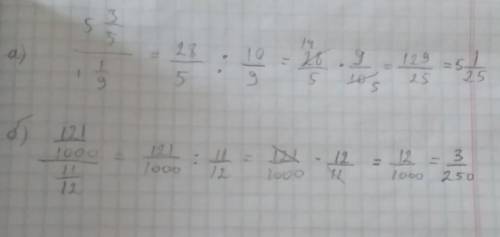 а) 5 3/5 / 1 1/9 = 28/5 : 10/9 = 28/5 · 9/10 = 129/25 = 5 1/25
14
5
б) 121/1000 / 11/12 = 121/1000 : 11/12 = 121/1000 · 12/11 = 12/1000 = 3/250